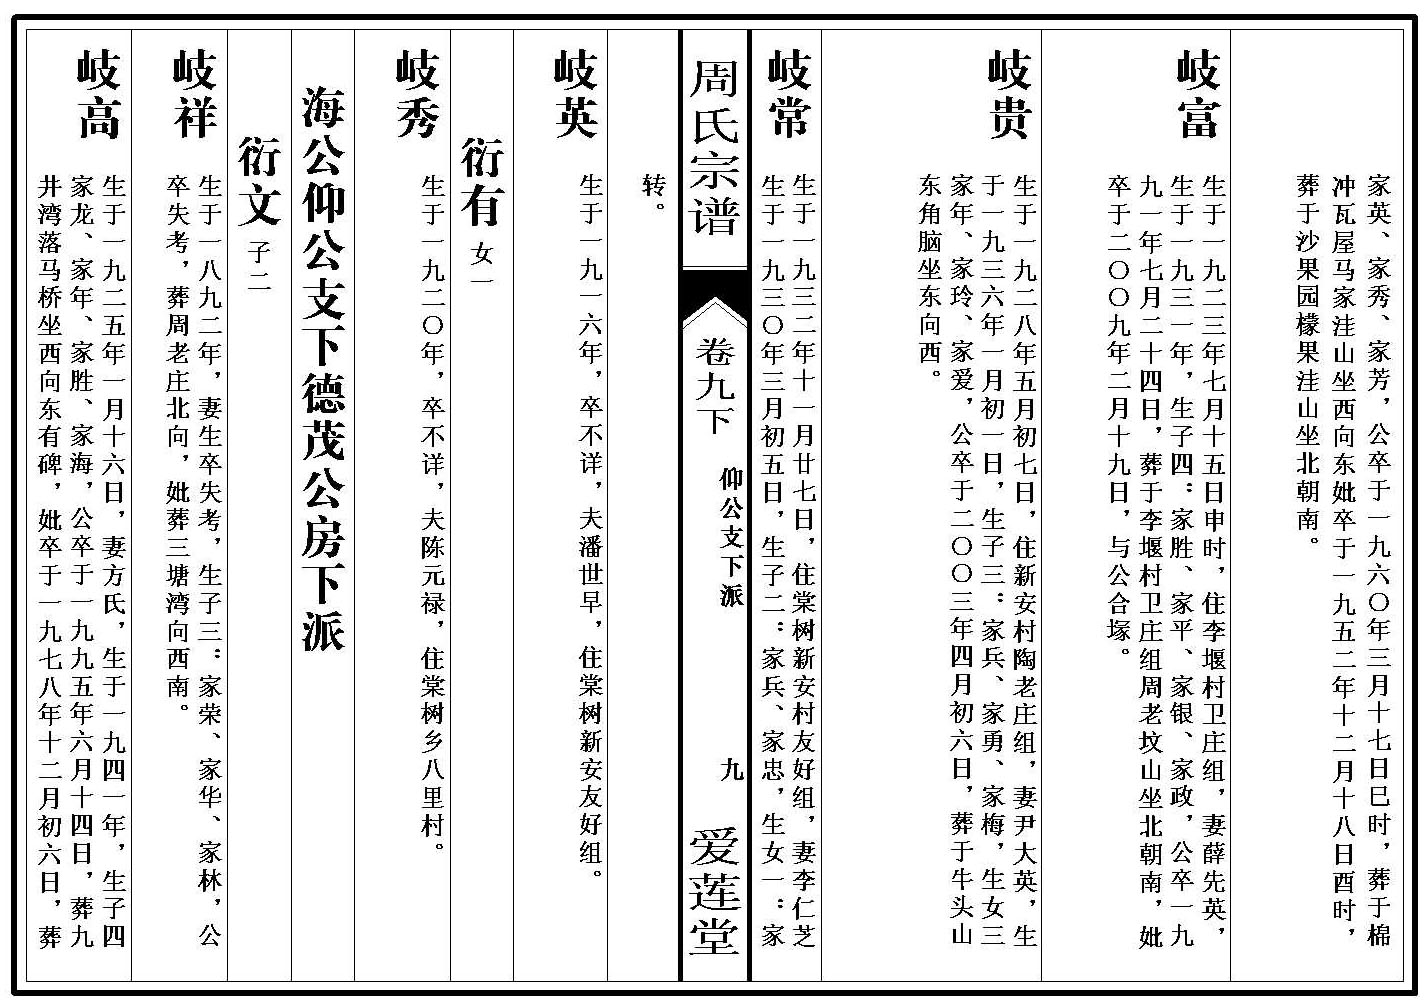 家英、家秀、家芳，公卒于一九六〇年三月十七日巳时，葬于棉
冲瓦屋马家洼山坐西向东妣卒于一九五二年十二月十八日酉时，
葬于沙果园檬果洼山坐北朝南。
岐富
生于一九二三年七月十五日申时，住李堰村卫庄组，妻薛先英，
生于一九三一年，生子四：家胜、家平、家银、家政，公卒一九
九一年七月二十四日，葬于李堰村卫庄组周老坟山坐北朝南，妣
卒于二〇〇九年二月十九日，与公合塚。
岐贵
生于一九二八年五月初七日，住新安村陶老庄组，妻尹大英，生
于一九三六年一月初一日，生子三：家兵、家勇、家梅，生女三
家年、家玲、家爱，公卒于二〇〇三年四月初六日，葬于牛头山
东角脑坐东向西。
岐常
生于一九三二年十一月廿七日，住棠树新安村友好组，妻李仁芝
生于一九三〇年三月初五日，生子二：家兵、家忠，生女一：家
周氏宗谱
卷九下
仰公支下派
九
爱莲堂
转。
岐英
生于一九一六年，卒不详，夫潘世早，住棠树新安友好组。
衍有
女一
岐秀
生于一九二〇年，卒不详，夫陈元禄，住棠树乡八里村。
海公仰公支下德茂公房下派
衍文
子二
岐祥
生于一八九二年，妻生卒失考，生子三：家荣、家华、家林，公
卒失考，葬周老庄北向，妣葬三塘湾向西南。
岐高
生于一九二五年一月十六日，妻方氏，生于一九四一年，生子四
家龙、家年、家胜、家海，公卒于一九九五年六月十四日，葬九
井湾落马桥坐西向东有碑，妣卒于一九七八年十二月初六日，葬